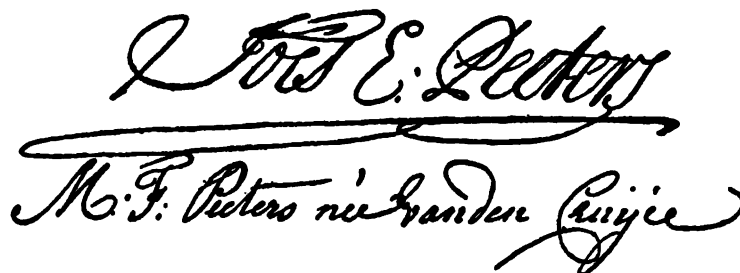 Joes E: Peeters
M: F: Peeters née vanden Cruijce